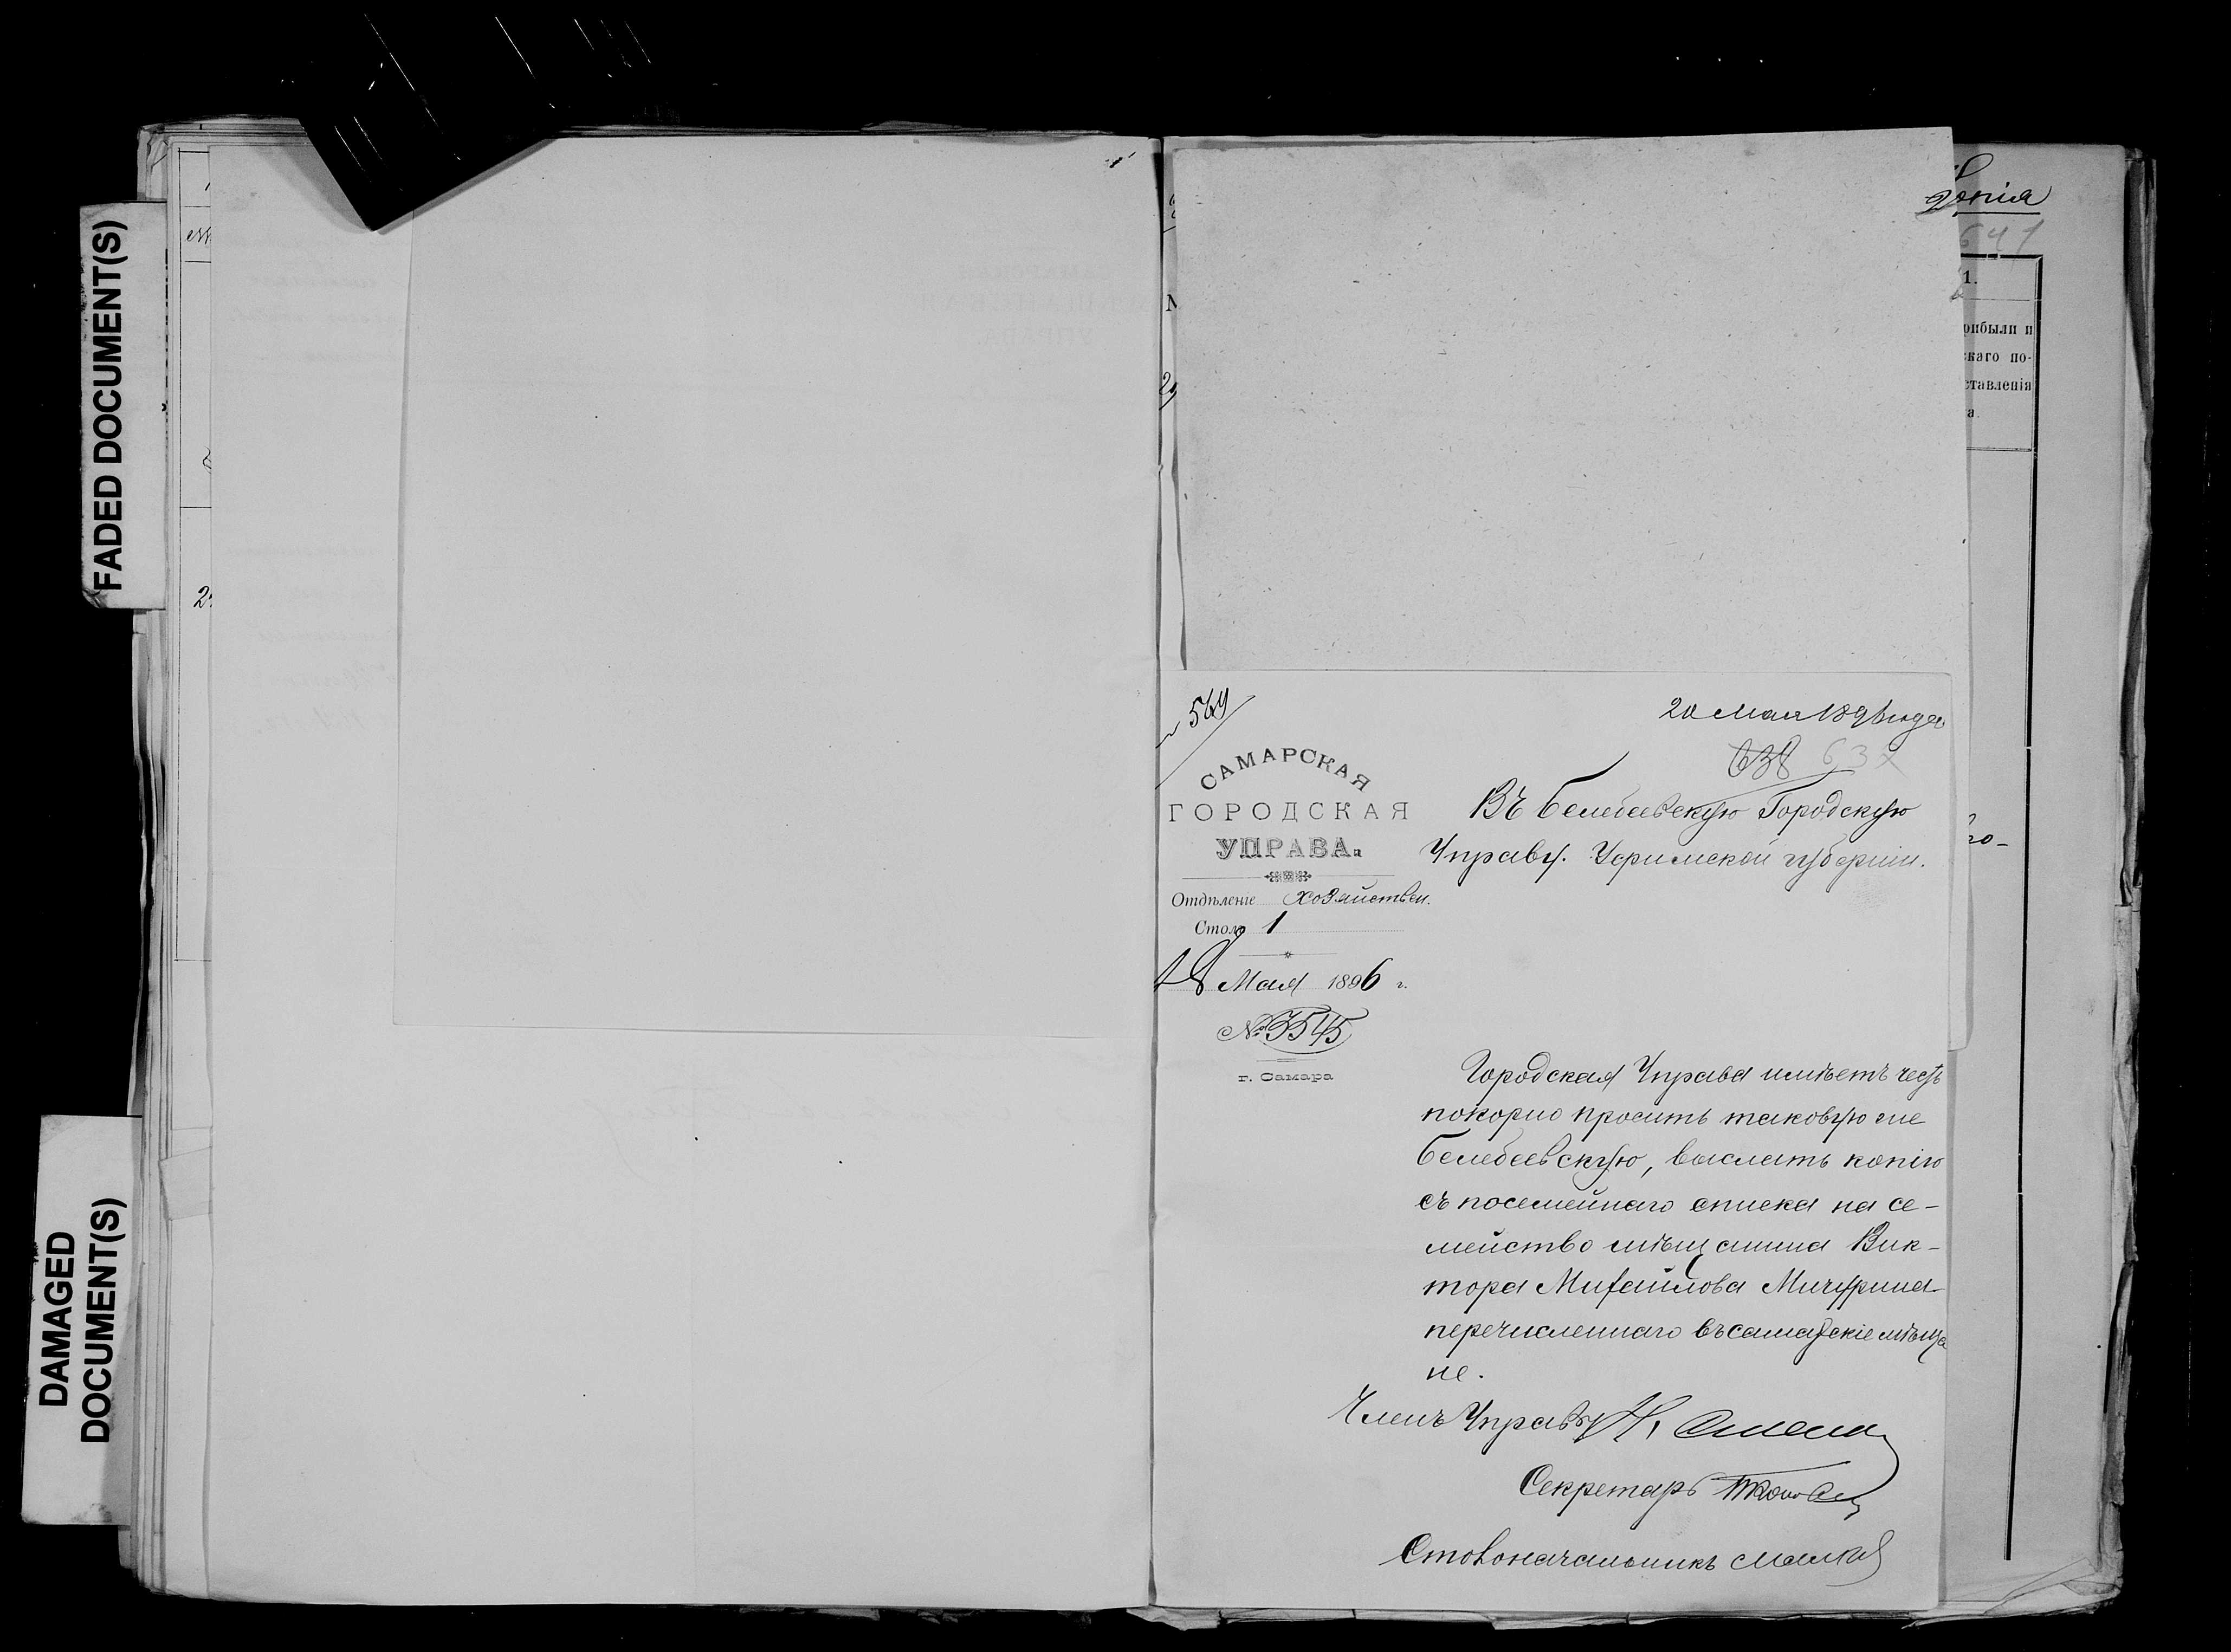 FADED DOCUMENT(S)
DAMAGED
DOCUMENT(S)
Копія
641
1.
рибыли и
скаго по-
ставленія
а
го-
569
20 Мая 1896 года
638 637
САМАРСКАЯ
ГОРОДСКАЯ
УПРАВА.
Отдѣленіе хозяйствен.
Столъ 1
18 Мая 1896 г.
№ 3545
г. Самара
Въ Белебеевскую Городскую
Управу. Уфимской губерніи.
Городская Управа имѣетъ честь
покорно просить таковую же
Белебеевскую, выслать копію
съ посемейнаго списка на се-
мейство мѣщанина Вик-
тора Михайлова Мичурина
перечисленнаго въ самарскіе мѣща
не.
Членъ Управы Н.
Секретарь
Столоначальникъ